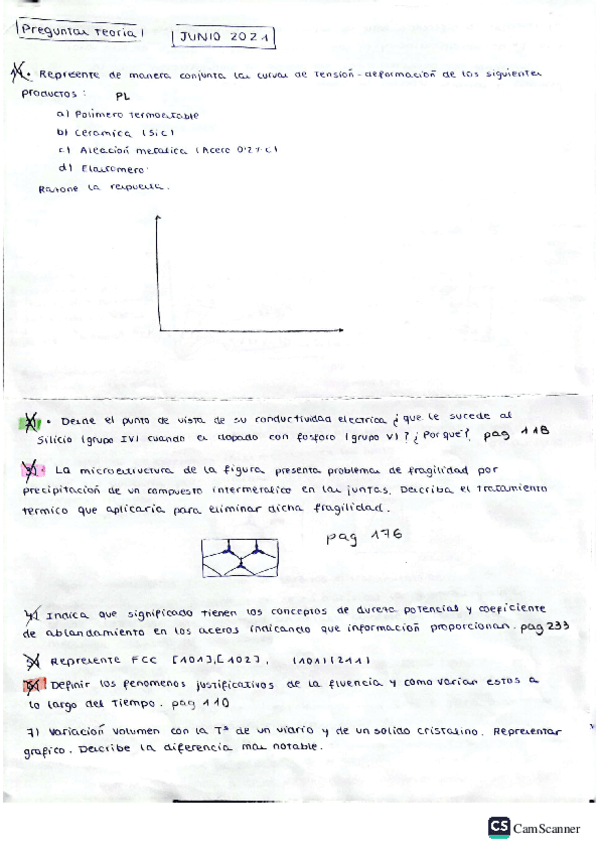 Preguntas teoria
JUNIO 2021
1. Represente de manera conjunta las curvas de tensión-deformación de los siguientes
productos: PL
a) Polimero termoestable
b) Ceramica (SiC)
c) Aleación metalica (Acero 0'2% C)
d) Elastomero
Razone la respuesta.
2. Desde el punto de vista de su conductividad electrica ¿que le sucede al
Silicio (grupo IV) cuando es dopado con fosforo (grupo V)? ¿Por que?. pag 118
3. La microestructura de la figura presenta problemas de fragilidad por
precipitación de un compuesto intermetalico en las juntas. Describa el tratamiento
termico que aplicaria para eliminar dicha fragilidad.
pag 176
4) Indica que significado tienen los conceptos de dureza potencial y coeficiente
de ablandamiento en los aceros indicando que información proporcionan. pag 233
5) Represente FCC [101],[102], (101)(211)
6) Definir los fenomenos justificativos de la fluencia y como varian estos a
lo largo del tiempo. pag 110
7) Variación volumen con la Tª de un vidrio y de un solido cristalino. Representar
grafico. Describe la diferencia mas notable.
CS CamScanner